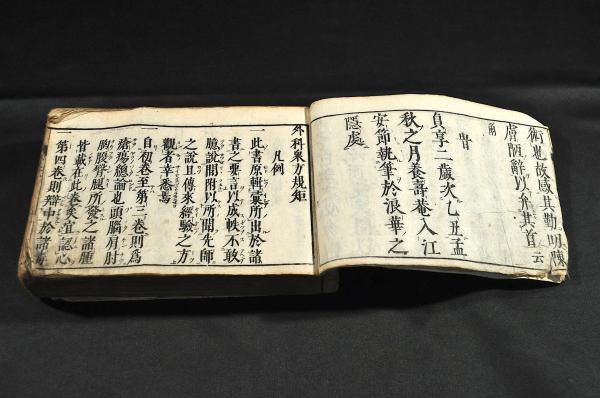 術也故感其勤明陳
膚陋辭以弁其首云
爾
旹
貞享二歲次乙丑孟
秋之月養壽菴入江
安節執筆於浪華之
隱處
外科衆方規矩
凡例
一此書原輯彙所出於諸
書之要言以成帙不敢
臆說間附以所聞先師
之說且傳來經驗之方
觀者幸悉焉
一自初卷至第三卷則爲
瘡瘍總論也頭腦肩肘
胸腹臂腿所發之諸腫
皆載在此卷矣宜認心
一第四卷則辯中於諸